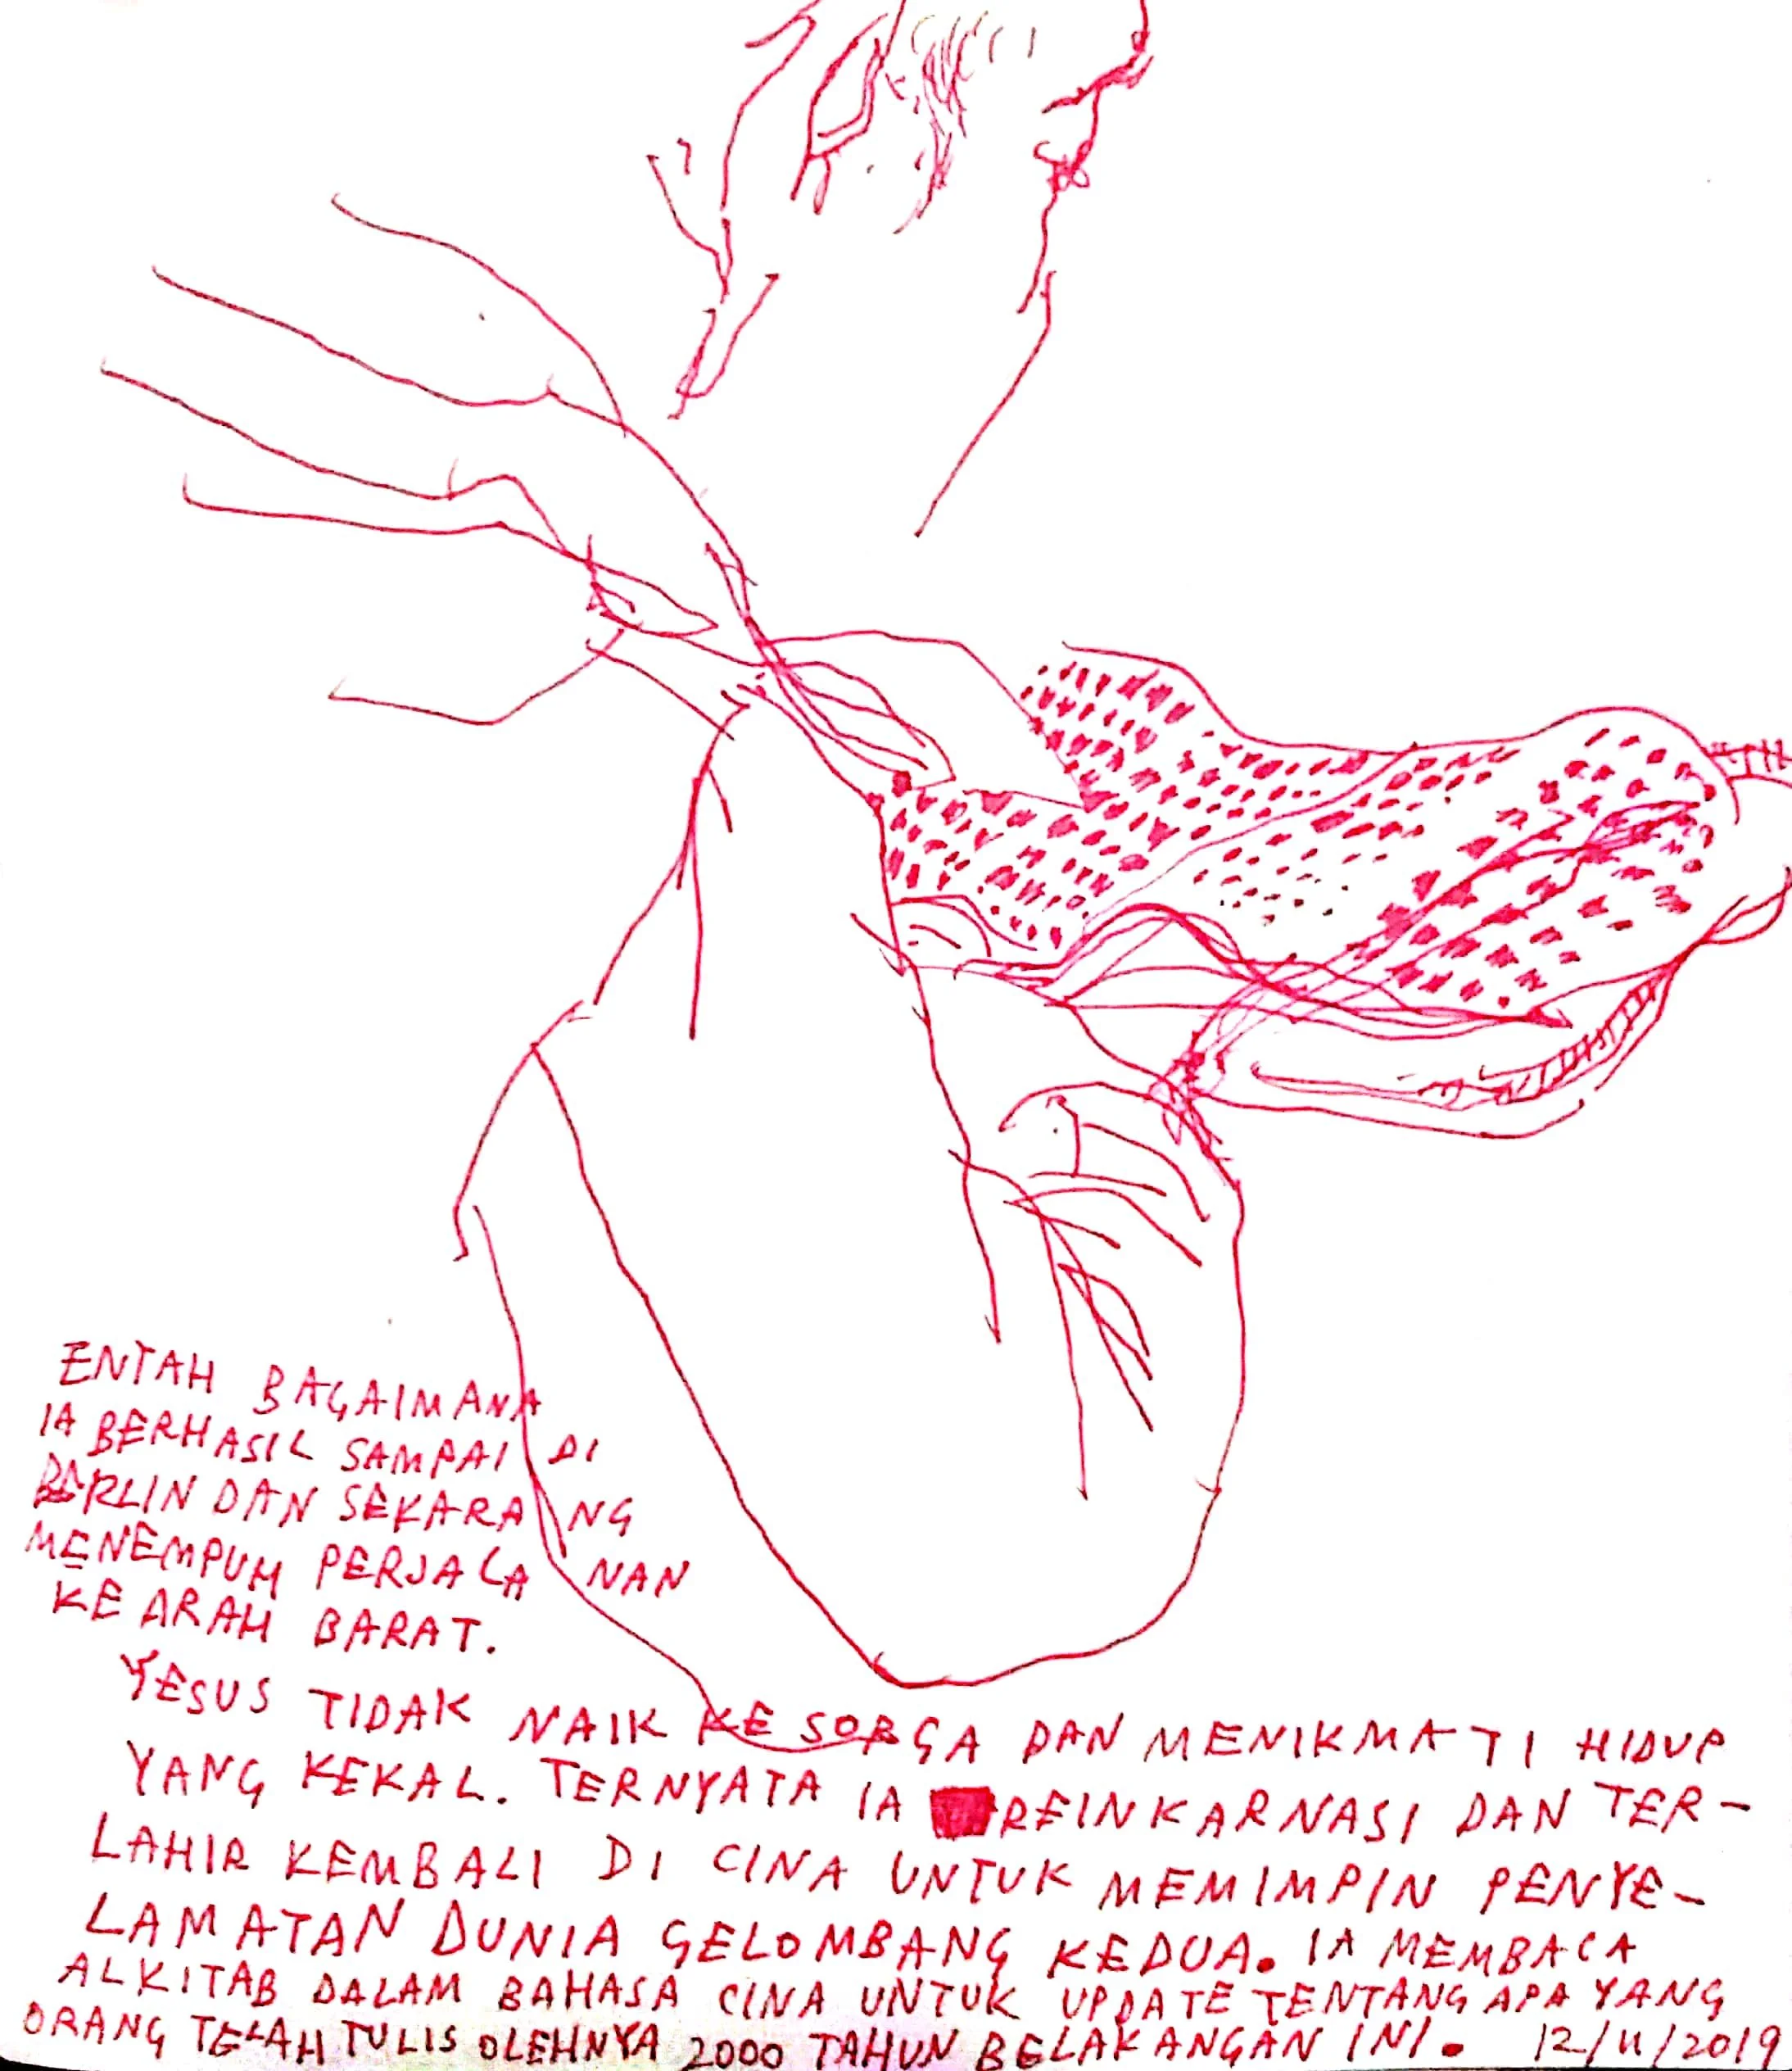 ENTAH BAGAIMANA
IA BERHASIL SAMPAI DI
BERLIN DAN SEKARANG
MENEMPUH PERJALANAN
KE ARAH BARAT.
YESUS TIDAK NAIK KE SORGA DAN MENIKMATI HIDUP
YANG KEKAL. TERNYATA IA REINKARNASI DAN TER-
LAHIR KEMBALI DI CINA UNTUK MEMIMPIN PENYE-
LAMATAN DUNIA GELOMBANG KEDUA. IA MEMBACA
ALKITAB DALAM BAHASA CINA UNTUK UPDATE TENTANG APA YANG
ORANG TELAH TULIS OLEHNYA 2000 TAHUN BELAKANGAN INI. 12/11/2019